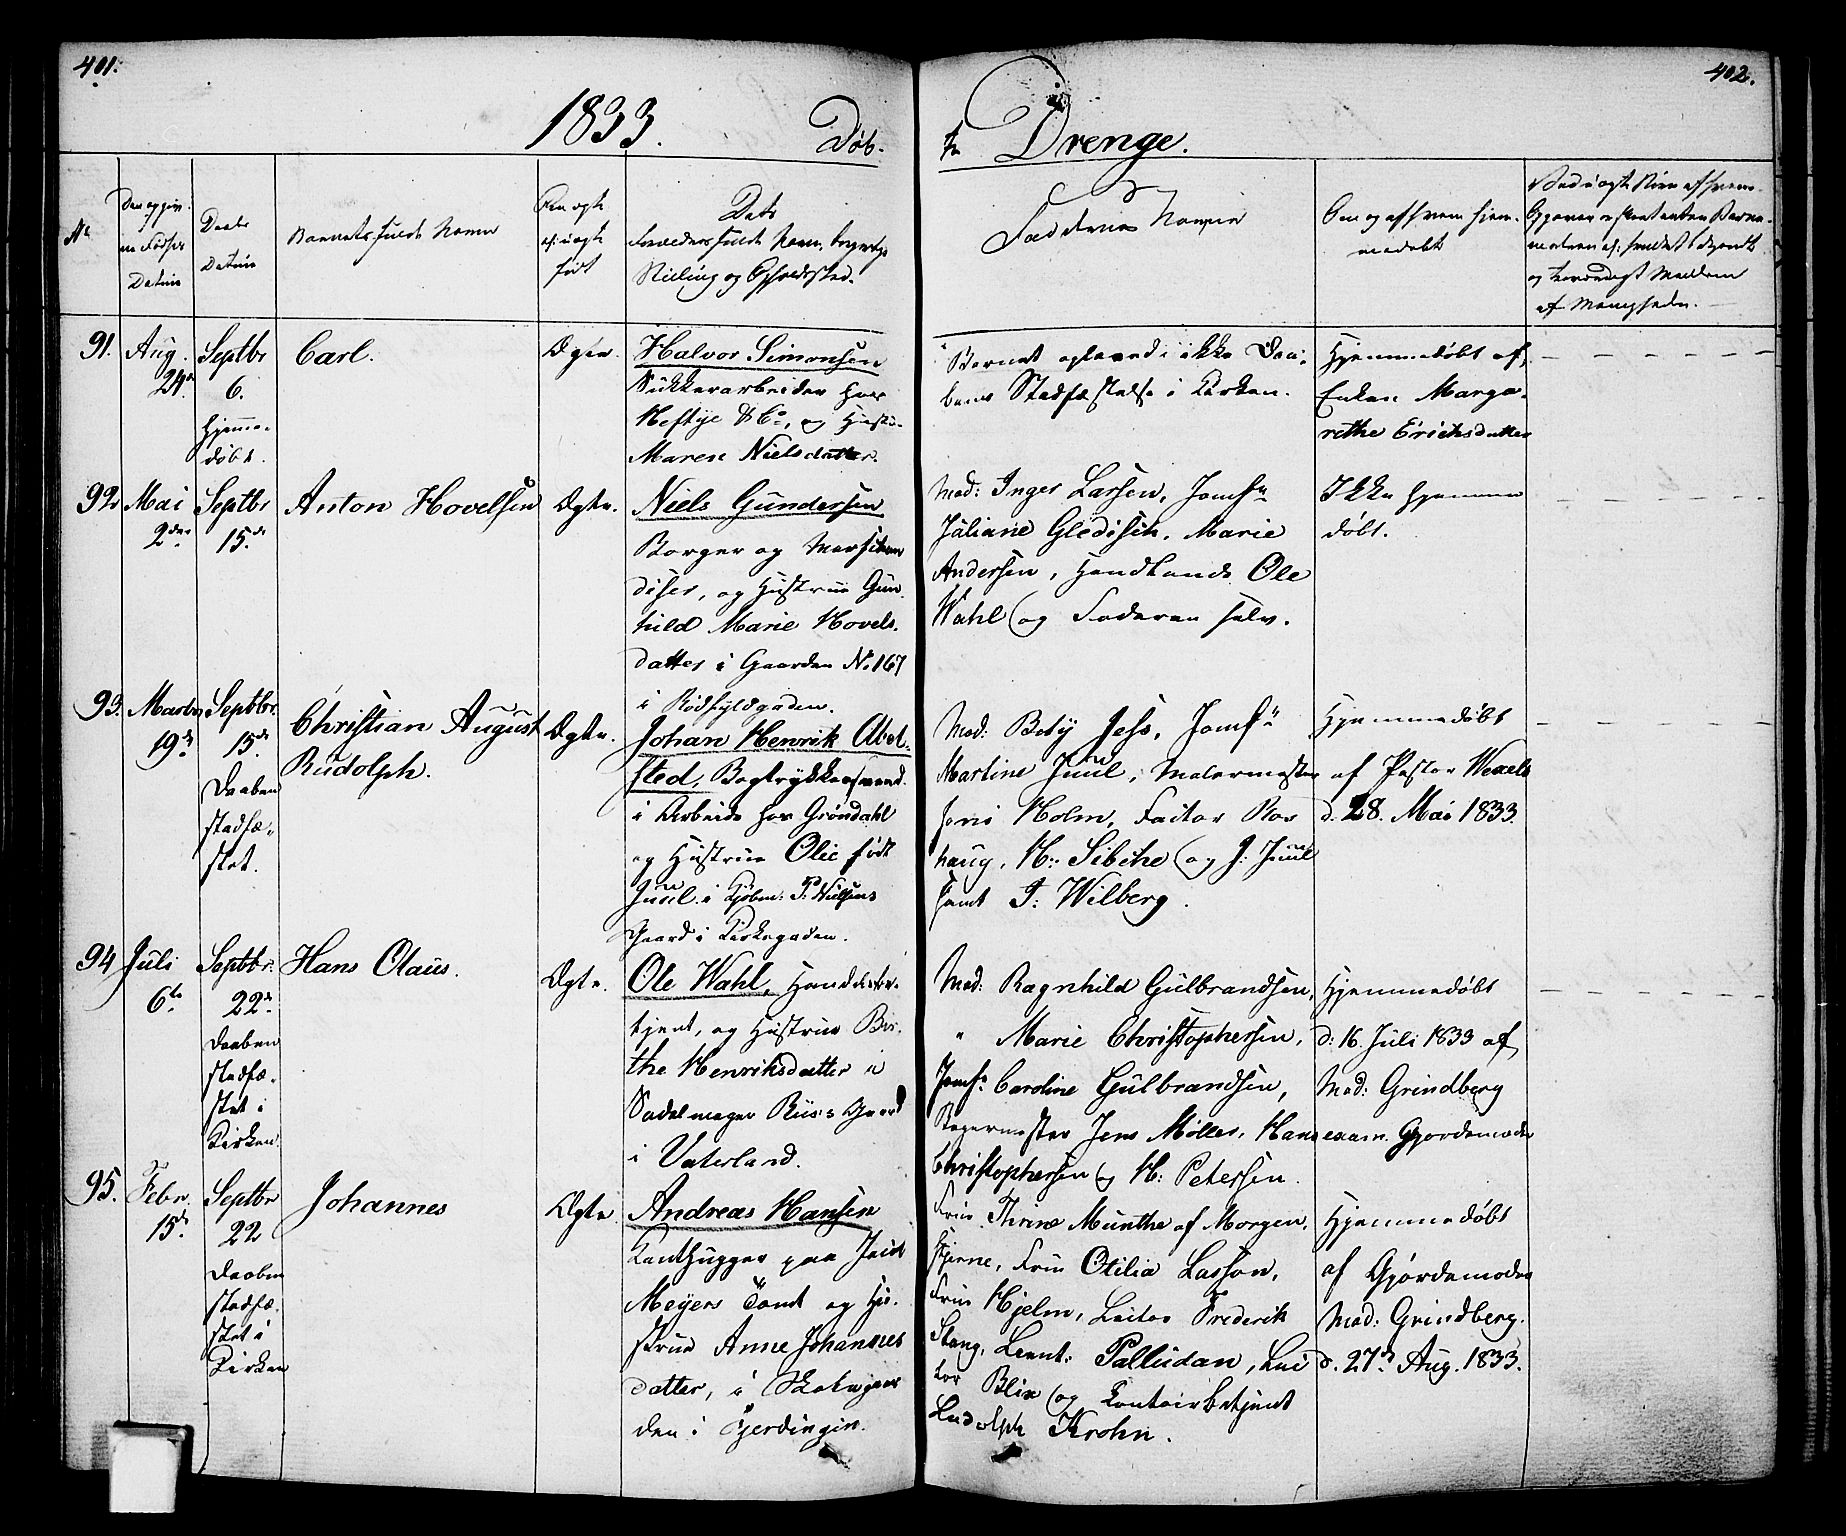 401.
402.
1833. Døb-
te Drenge.
No
Den opgiv-
ne Fødsels
Datum
Daabs
Datum
Barnets fulde Navn
Om ægte
el: uægte
født
Dets
Forældres fulde Navn, borgerlige
Stilling og Opholdssted.
Faddernes Navne
Om og af hvem hjem-
medøbt
af Menigheden.
91.
Aug.
24de
Septbr
6.
Hjemme-
døbt.
Carl.
Ægte.
Halvor Simonsen
Sukkerarbeider hos
Heftye & Co, og Hustru
Maren Nielsdatter.
Barnet oplevede ikke Daa-
bens Stadfæstelse i Kirken.
Hjemmedøbt af
Enken Marga-
rethe Erichsdatter
92
Mai
2den
Septbr
15de
Anton Hovelsen
Ægte.
Niels Gundersen
Borger og
og Hustrue Gun-
hild Marie Hovels-
datter i Gaarden No 167
i Rødfyldgaden.
Mad: Inger Larsen, Jomfu
Juliane Gleditsch, Marie
Andersen, Handlende Ole
Wahl og Faderen selv.
Ikke hjemme
døbt.
93.
Marts
19de
Septbr.
15de
Daaben
stadfæ-
stet.
Christian August
Rudolph.
Ægte.
Johan Henrik Abel-
sted, Bogtrykkersvend
i Arbeide hos Grøndahl
og Hustrue Olie født
Juul. i Kjøbm: P. Nielsens
Gaard i Kirkegaden.
Mad: Boty Jess, Jomfu
Martine Juul, Malermester
Jens Holm, Factor Ros
haug, H: Sibche og J: Juul
samt I: Wilberg.
Hjemmedøbt
af Pastor Wexels
d. 28. Mai 1833.
94
Juli
6te
Septbr.
22de
Daaben
stadfæ-
stet i
Kirken.
Hans Olaus.
Ægte.
Ole Wahl,
og Hustrue Bir-
the Henriksdatter i
Sadelmager Riis's Gaard
i Vaterland.
Mad: Ragnhild Gulbrandsen,
" Marie Christophersen,
Jomfr. Caroline Gulbrandsen,
Bagermester Jens Møller, Hans
Christophersen og H: Petersen.
Hjemmedøbt
d: 16. Juli 1833 af
Mad: Grindberg
exam. Gjordemoder
95.
Febr.
15de
Septbr
22
Daaben
stadfæ-
stet i
Kirken
Johannes
Ægte.
Andreas Hansen
Kanthugger paa Jacob
Meyers Tomt og Hu-
strue Anne Johannes
datter, i
den i Fjerdingen.
Frue Thrine Munthe af Morgen-
stjerne, Frue Otilia Lasson,
Frue Hjelm, Lector Frederik
Stang, Leunt: Palludan, Lec
tor Blix og Kontoirbetjent
Ludolph Krohn.
Hjemmedøbt
af Gjordemoder
Mad: Grindberg.
d. 27de Aug. 1833.